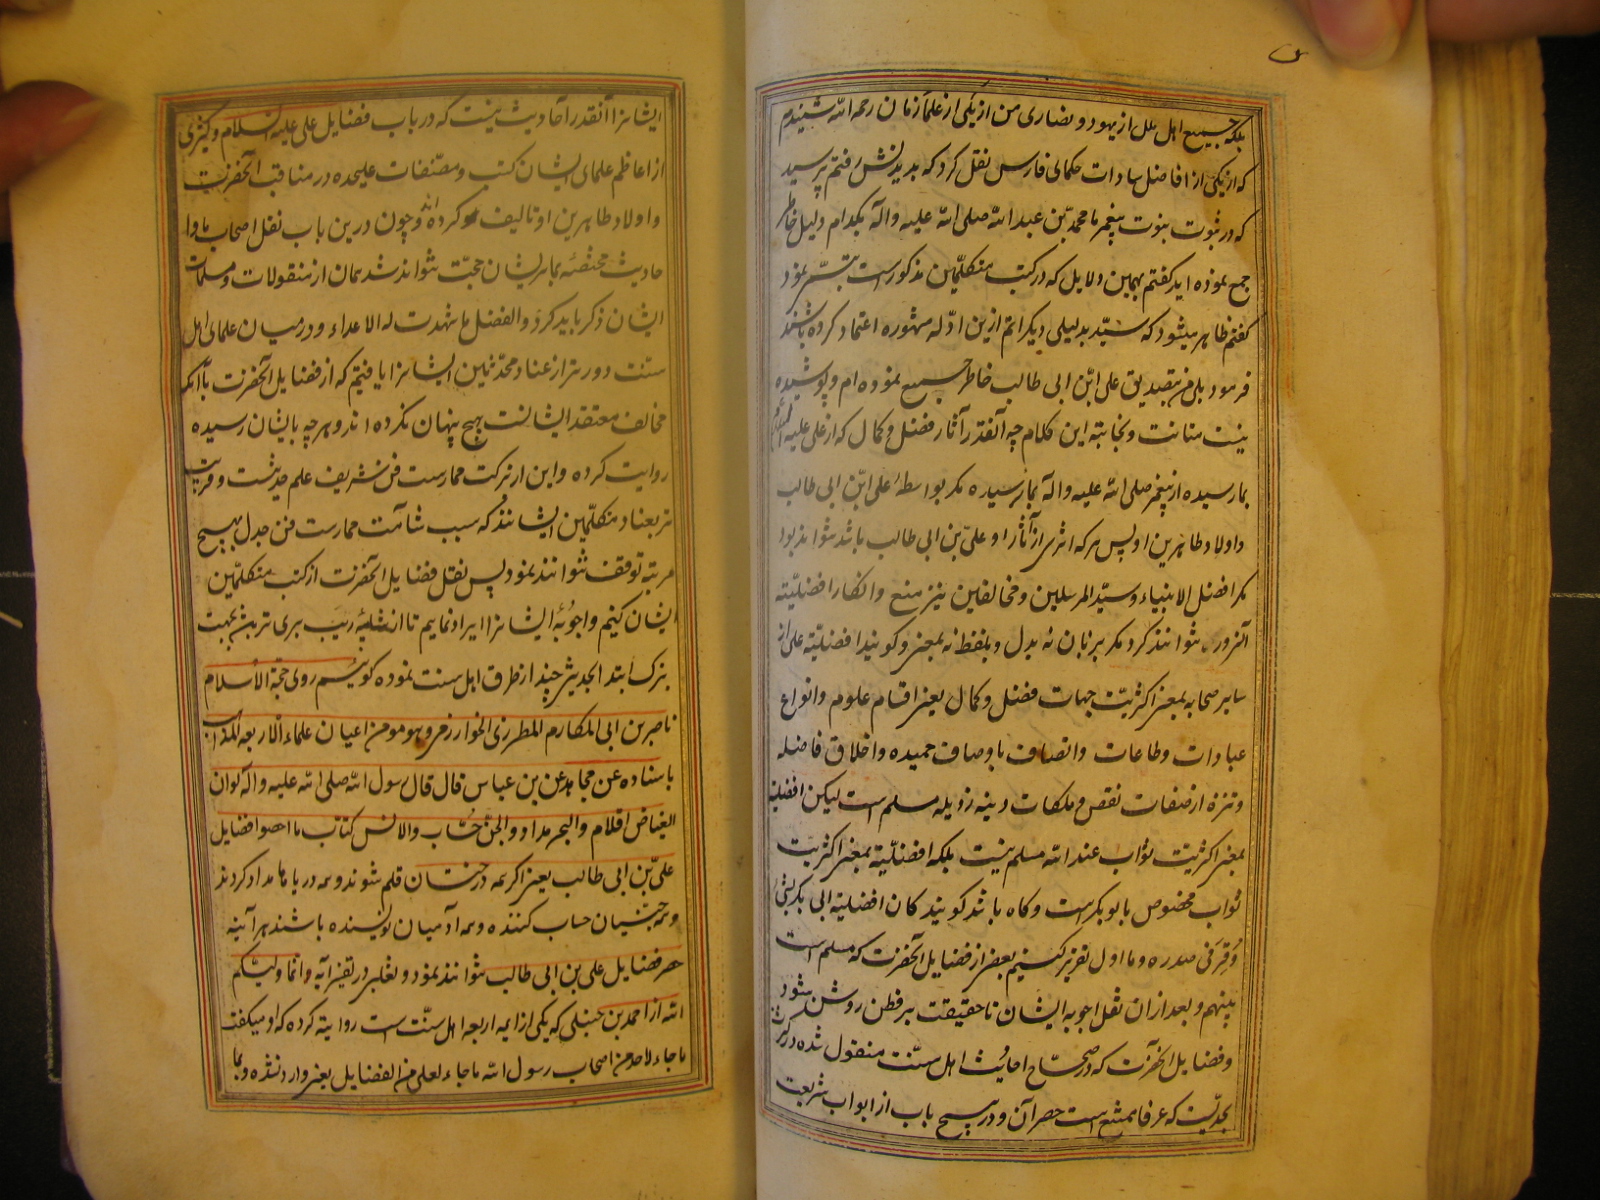 بلکه جمیع اهل ملل از یهود و نصاری من از یکی از علماء زمان رحمه الله شنیدم
که از یکی از افاضل سادات حکمای فارس نقل کرد که بدیدنش رفتم پرسید
که در ثبوت نبوت پیغمبر ما محمد بن عبد الله صلی الله علیه واله بکدام دلیل خاطر
جمع نموده اید کفتم بهمین دلایل که در کتب متکلمین مذکور است تبسّم نمود
کفتم ظاهر میشود که سید بدلیلی دیکر اتم ازین ادله مشهوره اعتماد کرده باشند
فرمود بلی من بتصدیق علی ابن ابی طالب خاطر جمع نموده ام و پوشیده
نیست متانت و نجابت این کلام چه آنقدر آثار فضل و کمال که از علی علیه السلام
بما رسیده از پیغمبر صلی الله علیه واله بما نرسیده مکر بواسطهٔ علی ابن ابی طالب
و اولاد طاهرین او پس هر که اثری از آثار او علی بن ابی طالب باشد نتواند بود
مکر افضل الانبیاء و سید المرسلین و مخالفین نیز منع و انکار افضلیّت
آنسرور نتوانند کرد مکر بزبان نه بدل و بلفظ نه بمعنی و کویند افضلیّت علی از
سایر صحابه بمعنی اکثریّت جهات فضل و کمال یعنی اقسام علوم و انواع
عبادات و طاعات و اتصاف باوصاف حمیده و اخلاق فاضله
و تنزه از صفات نقص و ملکات دنیه رذیله مسلم است لیکن افضلیت
بمعنی اکثریّت ثواب عند الله مسلم نیست بلکه افضلیّت بمعنی اکثریّت
ثواب مخصوص بابو بکر است و کاه باشد کویند کان افضلیة ابی بکر بشیٔ
وُقِرَ فی صدره و ما اول تقریر کنیم بعضی از فضایل آنحضرت که مسلم است
بینهم و بعد از ان نقل اجوبه ایشان تا حقیقت بر فطن روشن شود
و فضایل آنحضرت که در صحاح احادیث اهل سنّت منقول شده در کثرت
بحدیست که عرفا ممتنع است حصر آن و در هیچ باب از ابواب شریعت
ایشانرا آنقدر احادیث نیست که در باب فضایل علی علیه السلام و کثیری
از اعاظم علمای ایشان کتب و مصنفات علیحده در مناقب آنحضرت
و اولاد طاهرین او تالیف کرده اند و چون درین باب نقل اصحاب ما و ا
حادیث مختصه بما برایشان حجت نتواند شد بمان از منقولات و مسلمات
ایشان ذکر باید کرد و الفضل ما شهدت له الاعداء و در میان علمای اهل
سنّت دورتر از عناد محدّثین ایشانرا یافتم که از فضایل آنحضرت با آنکه
مخالف معتقد ایشانست هیچ پنهان نکرده اند و هر چه بایشان رسیده
روایت کرده و این از برکت ممارست فن شریف علم حدیثست و قریب
تر بعناد متکلمین ایشانند که سبب شامت ممارست فن جدل بهیچ
مرتبه توقف نتوانند نمود پس نقل فضایل آنحضرت از کتب متکلمین
ایشان کنیم و اجوبهٔ ایشانرا ایراد نمایم تا از شایبهٔ ریب بری تر بشد بجهت
تبرک ابتدا بحدیثی چند از طرق اهل سنت نموده کوییم روی حجة الاسلام
ناصر بن ابی المکارم المطرزی الخوارزمی و هو من اعیان علماء الاربعه المذاهب
باسناده عن مجاهد عن بن عباس قال قال رسول الله صلی الله علیه واله لو ان
الغیاض اقلام و البحر مداد و الجن حُسّاب و الانس کتاب ما احصوا فضایل
علیّ بن ابی طالب یعنی اکر همه درختان قلم شوند و همه دریاها مداد کردند
و همه جنّیان حساب کننده و همه آدمیان نویسنده باشند هر آینه
حصر فضایل علی بن ابی طالب نتوانند نمود و ثعلبی در تفسیر آیه و انما ولیّکم
الله از احمد بن حنبل که یکی از ایمه اربعه اهل سنّت است روایت کرده که او میکفت
ما جاء لاحد من اصحاب رسول الله ما جاء لعلی من الفضایل یعنی وارد نشده و بما